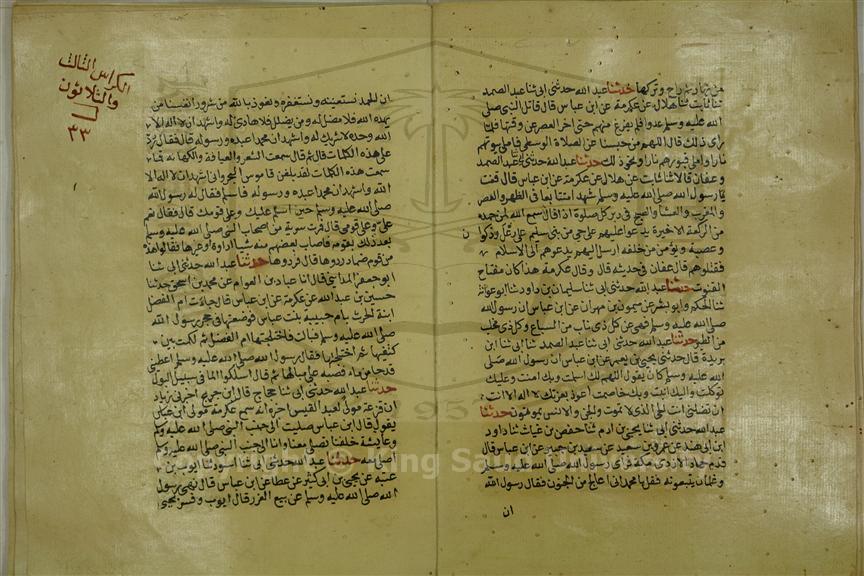 من نهاره راح وتركها حدثنا عبد الله حدثنى ابى ثنا عبد الصمد
ثنا ثابت ثنا هلال عن عكرمة عن ابن عباس قال قاتل النبى صلى
الله عليه وسلم عدوا فلم يفرغ منهم حتى اخر العصر عن وقتها فلما
راى ذلك قال اللهم من حبسنا عن الصلاة الوسطى فاملا بيوتهم
نارا واملا قبورهم نارا ونحو ذلك حدثنا عبد الله حدثنى ابى ثنا عبد الصمد
وعفان قالا ثنا ثابت عن هلال عن عكرمة عن ابن عباس قال قنت
رسول الله صلى الله عليه وسلم شهرا متتابعا فى الظهر والعصر
والمغرب والعشا والصبح فى دبر كل صلوة اذا قال سمع الله لمن حمده
من الركعة الاخيرة يدعوا عليهم على حى من بنى سليم على رعل وذكوان
وعصية ويؤمن من خلفه ارسل اليهم يدعوهم الى الاسلام
فقتلوهم قال عفان فى حديثه قال وقال عكرمة هذا كان مفتاح
القنوت حدثنا عبد الله حدثنى ابى ثنا سليمان بن داود ثنا ابو عوانة
ثنا الحكم وابو بشر عن ميمون بن مهران عن ابن عباس ان رسول الله
صلى الله عليه وسلم نهى عن كل ذى ناب من السباع وكل ذى مخلب
من الطير حدثنا عبد الله حدثنى ابى ثنا عبد الصمد ثنا ابى ثنا ابن
بريدة قال حدثنى يحيى بن يعمر عن ابن عباس ان رسول الله صلى
الله عليه وسلم كان يقول اللهم لك اسلمت وبك امنت وعليك
توكلت واليك انبت وبك خاصمت اعوذ بعزتك لا اله الا انت
ان تضلنى انت الحى الذى لا تموت والجن والانس يموتون حدثنا
عبد الله حدثنى ابى ثنا يحيى بن ادم ثنا حفص بن غياث ثنا داود
ابن ابى هند عن عمرو بن سعيد عن سعيد بن جبير عن ابن عباس قال
قدم ضماد الازدى مكة فراى رسول الله صلى الله عليه وسلم
وغلمان يتبعونه فقال يا محمد انى اعالج من الجنون فقال رسول الله
ان
الكراس الثالث
والثلاثون
٣٣
ان الحمد لله نستعينه ونستغفره ونعوذ بالله من شرور انفسنا من
يهده الله فلا مضل له ومن يضلل فلا هادى له واشهد ان لا اله الا
الله وحده لا شريك له واشهد ان محمدا عبده ورسوله قال فقال رد
على هذه الكلمات قال ثم قال سمعت الشعر والعيافة والكهانة فما
سمعت هذه الكلمات لقد بلغن قاموس البحر وانى اشهد ان لا اله الا
الله واشهد ان محمدا عبده ورسوله فاسلم فقال له رسول الله
صلى الله عليه وسلم حين اسلم عليك وعلى قومك قال فقال نعم
على وعلى قومى قال فمرت سرية من اصحاب النبى صلى الله عليه وسلم
بعد ذلك بقومه فاصاب بعضهم منه شيا اداوة او غيرها فقالوا هذه
من قوم ضماد ردوها قال فردوها حدثنا عبد الله حدثنى ابى ثنا
ابو جعفر المدائنى قال انا عباد بن العوام عن محمد بن اسحق حدثنا
حسين بن عبد الله عن عكرمة عن ابن عباس قال جاءت ام الفضل
ابنة الحرث بام حبيبة بنت عباس فوضعتها فى حجر رسول الله
صلى الله عليه وسلم فبالت فاختلجتها ام الفضل ثم لكمت بين
كتفيها ثم اختلجتها فقال رسول الله صلى الله عليه وسلم اعطنى
قدحا من ماء فصبه على مبالها ثم قال اسلكوا الماء فى سبيل البول
حدثنا عبد الله حدثنى ابى ثنا حجاج قال ابن جريج اخبرنى زياد
ان قزعة مولى لعبد القيس اخبره انه سمع عكرمة مولى ابن عباس
يقول قال ابن عباس صليت الى جنب النبى صلى الله عليه وسلم
وعايشة خلفنا تصلى معنا وانا الى جنب النبى صلى الله عليه وسلم
اصلى معه حدثنا عبد الله حدثنى ابى ثنا اسود ثنا ايوب بن
عتبة عن يحيى بن ابى كثير عن عطا عن ابن عباس قال نهى رسول
الله صلى الله عليه وسلم عن بيع الغرر قال ايوب وفسر يحيى